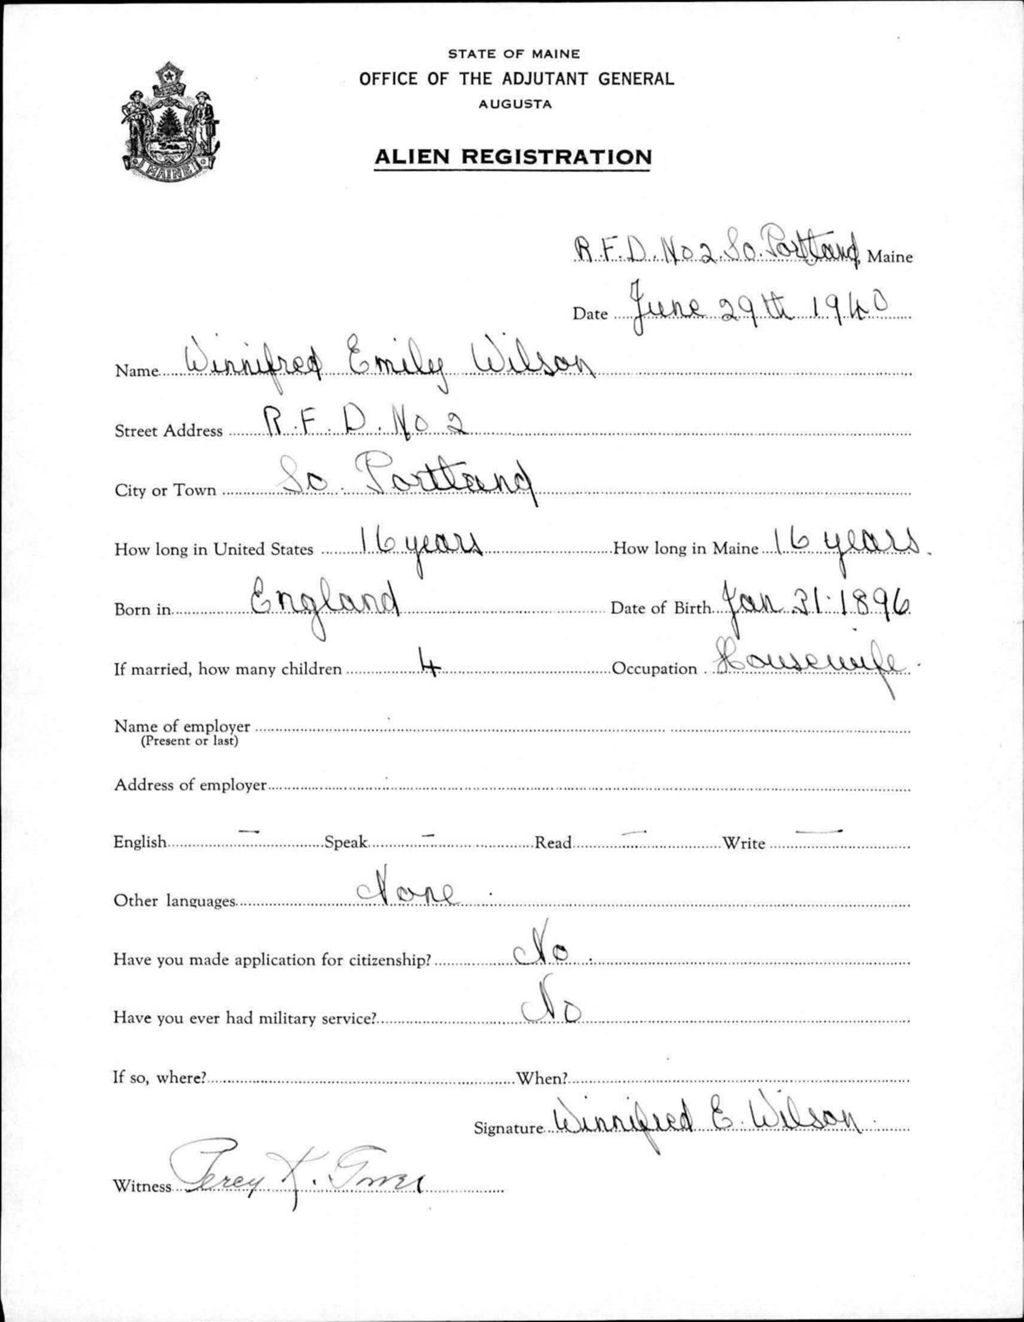 STATE OF MAINE
OFFICE OF THE ADJUTANT GENERAL
AUGUSTA
ALIEN REGISTRATION
MAINE
R.F.D. No 2. So. Portland, Maine
Date June 29th 1940
Name Winnifred Emily Wilson
Street Address R.F.D. No 2
City or Town So. Portland
How long in United States 16 years How long in Maine 16 years.
Born in England Date of Birth Jan 31. 1896
If married, how many children 4 Occupation Housewife.
Name of employer
(Present or last)
Address of employer
English — Speak — Read — Write —
Other languages None.
Have you made application for citizenship? No.
Have you ever had military service? No
If so, where? When?
Signature Winnifred E. Wilson.
Witness Percy K.